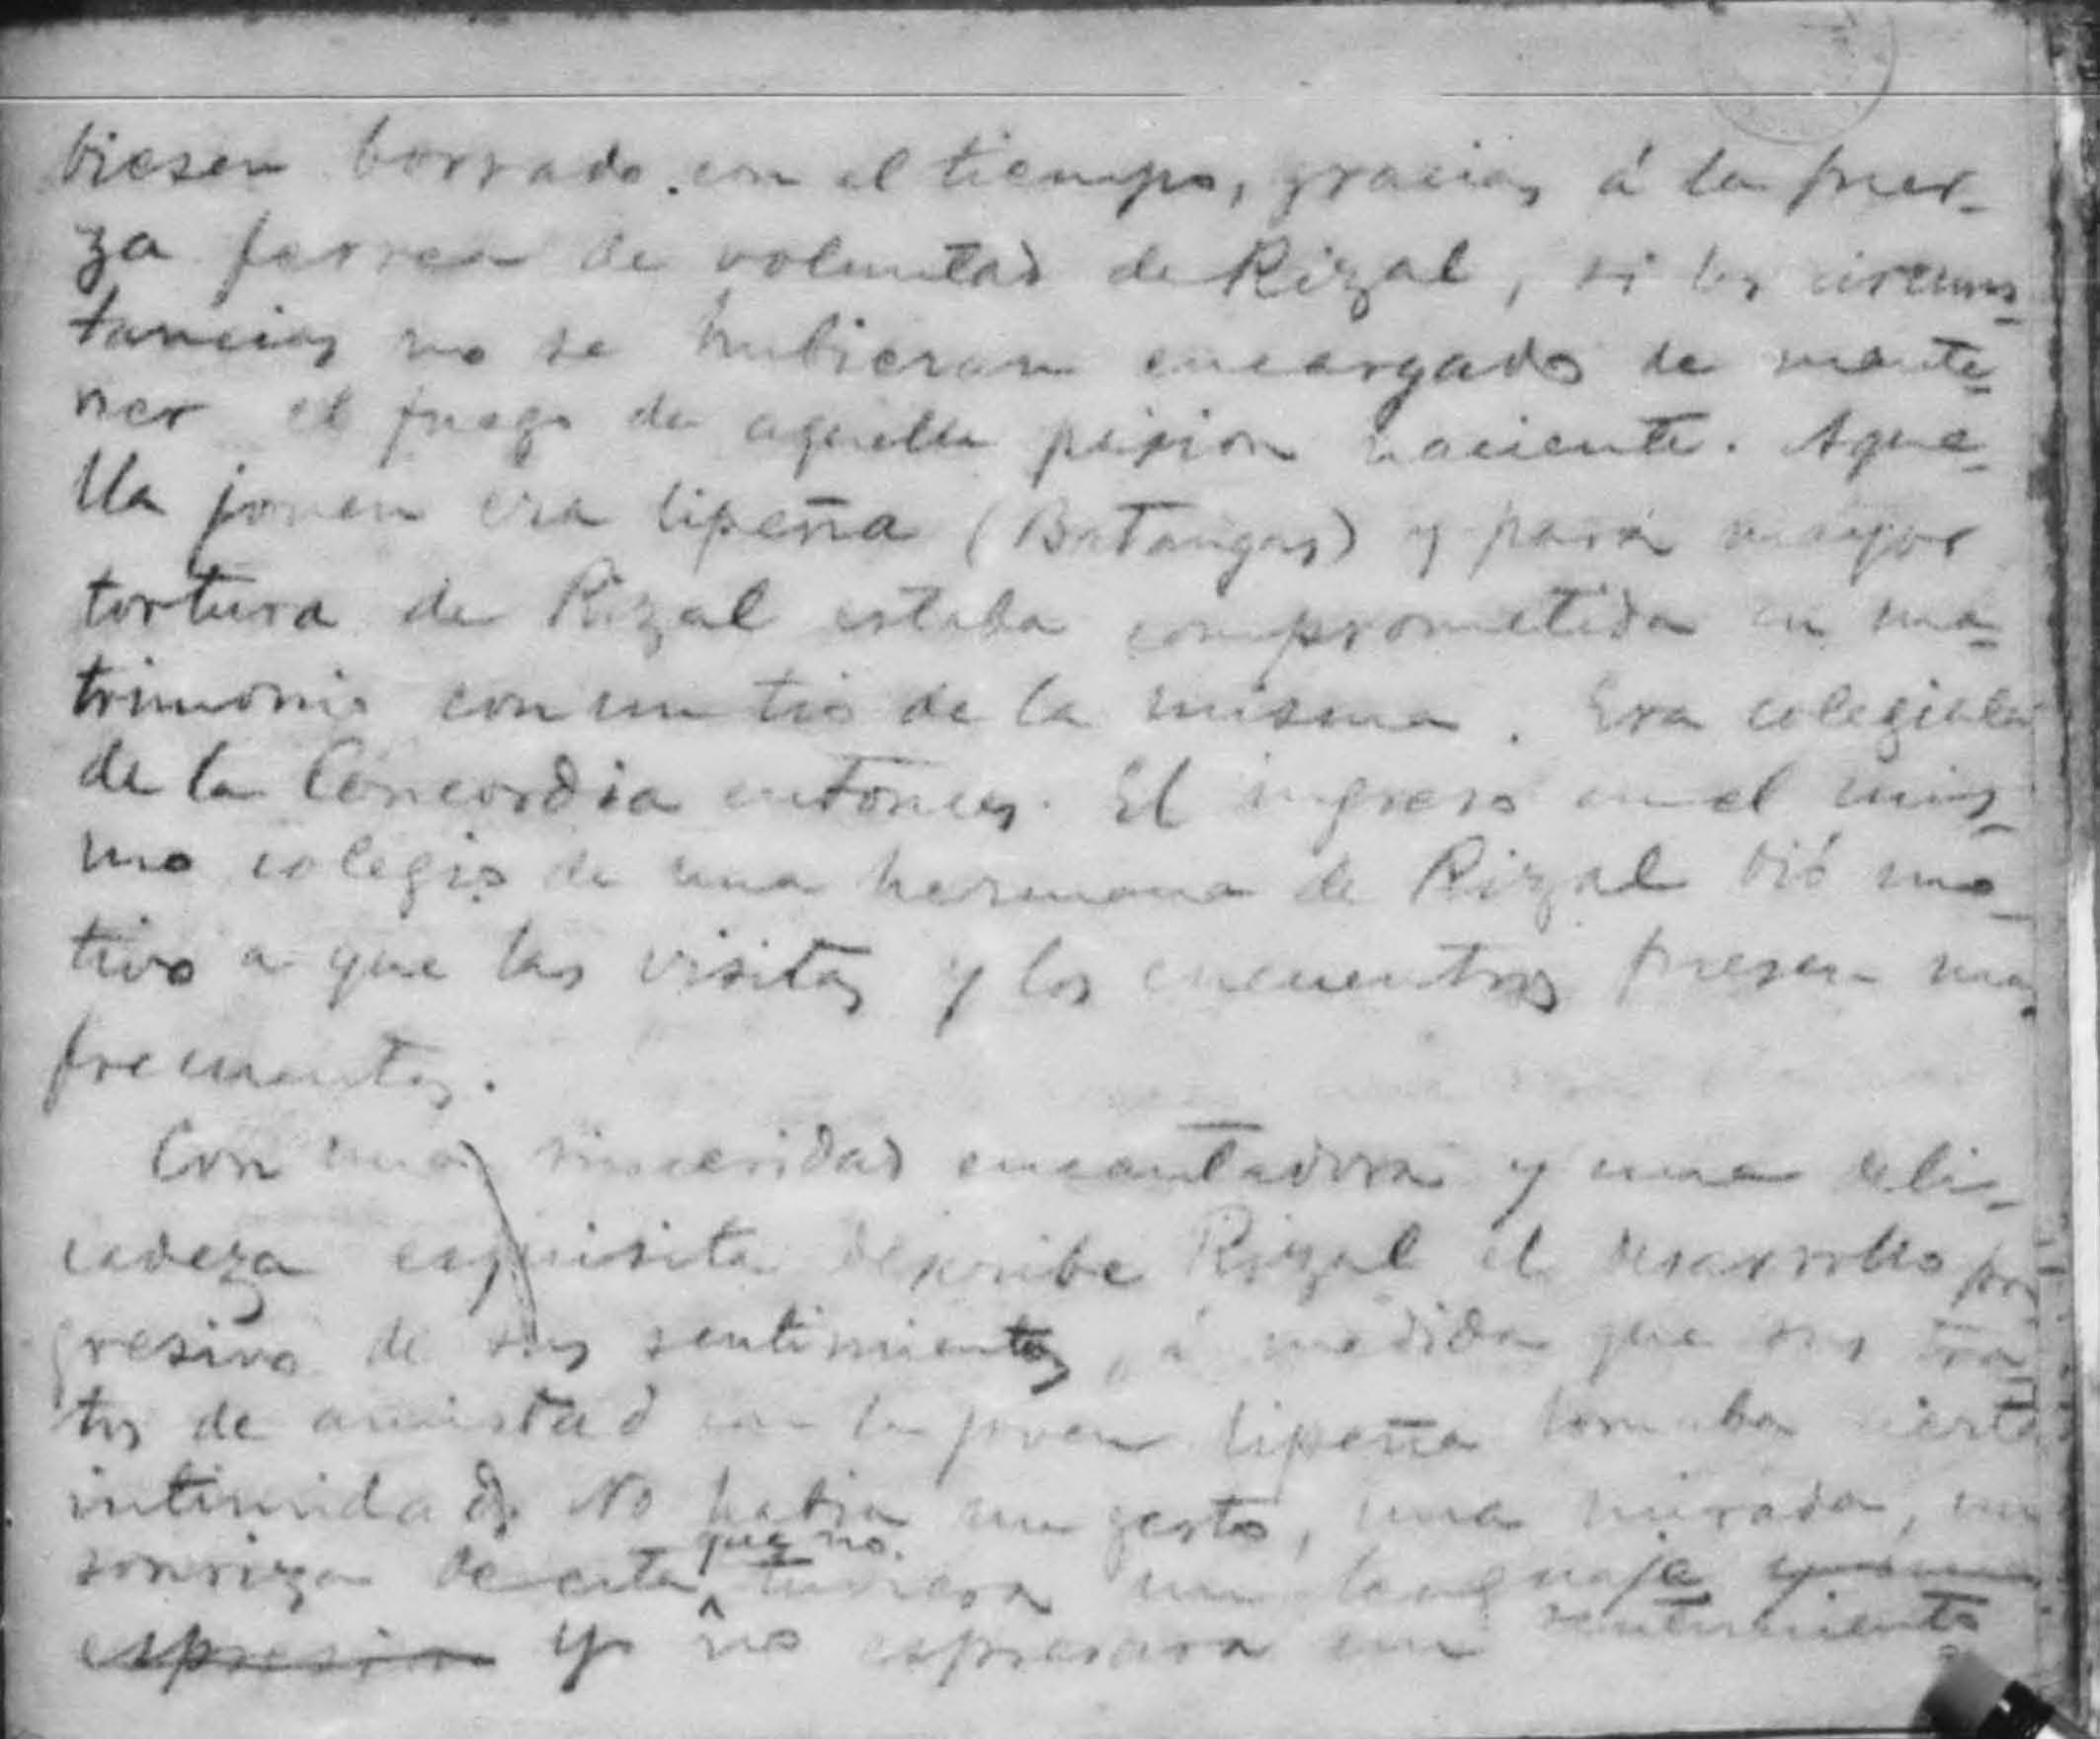 biesen borrado con el tiempo, gracias á la fuer-
za ferrea de voluntad de Rizal, si las circuns-
tancias no se hubieran encargado de mante-
ner el fuego de aquella pasion naciente. Aque-
lla joven era lipeña (Batangas) y para mayor
tortura de Rizal estaba comprometida en ma-
trimonio con un tio de la misma. Era colegiala
de la Concordia entonces. El ingreso en el mis-
mo colegio de una hermana de Rizal dió mo-
tivo a que las visitas y los encuentros fuesen mas
frecuentes.
Con una sinceridad encantadora y una deli-
cadeza esquisita describe Rizal el desarrollo pro-
gresivo de sus sentimientos, á medida que sus tra-
tos de amistad con la joven lipeña tomaba cierta
intimidad. No habia un gesto, una mirada, una
sonriza de esta que no tuviera un lenguaje y una
espresion y no espresara un sentimiento